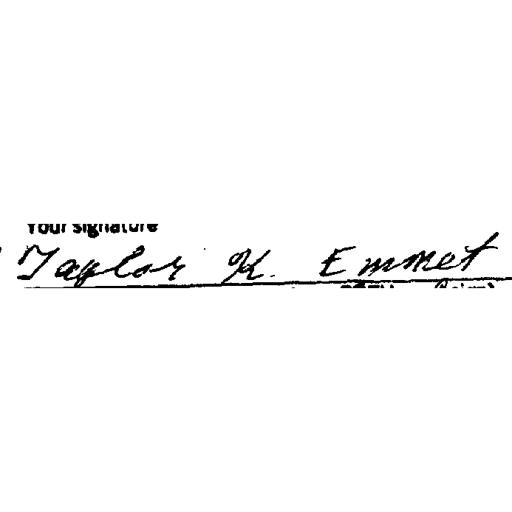 Your signature
Taylor K. Emmet